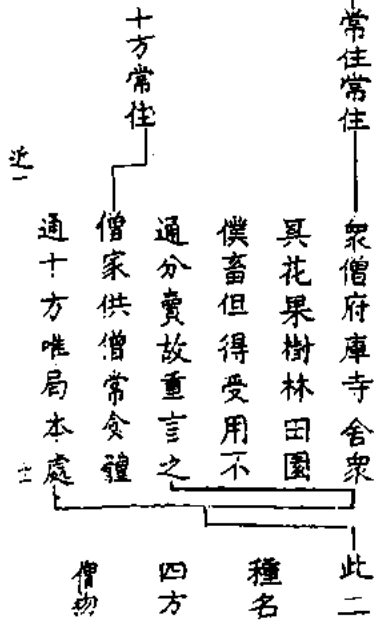 常住常住
衆僧府庫寺舍衆
具花果樹林田園
僕畜但得受用不
通分賣故重言之
十方常住
僧家供僧常食體
通十方唯局本處
此二
種名
四方
僧物